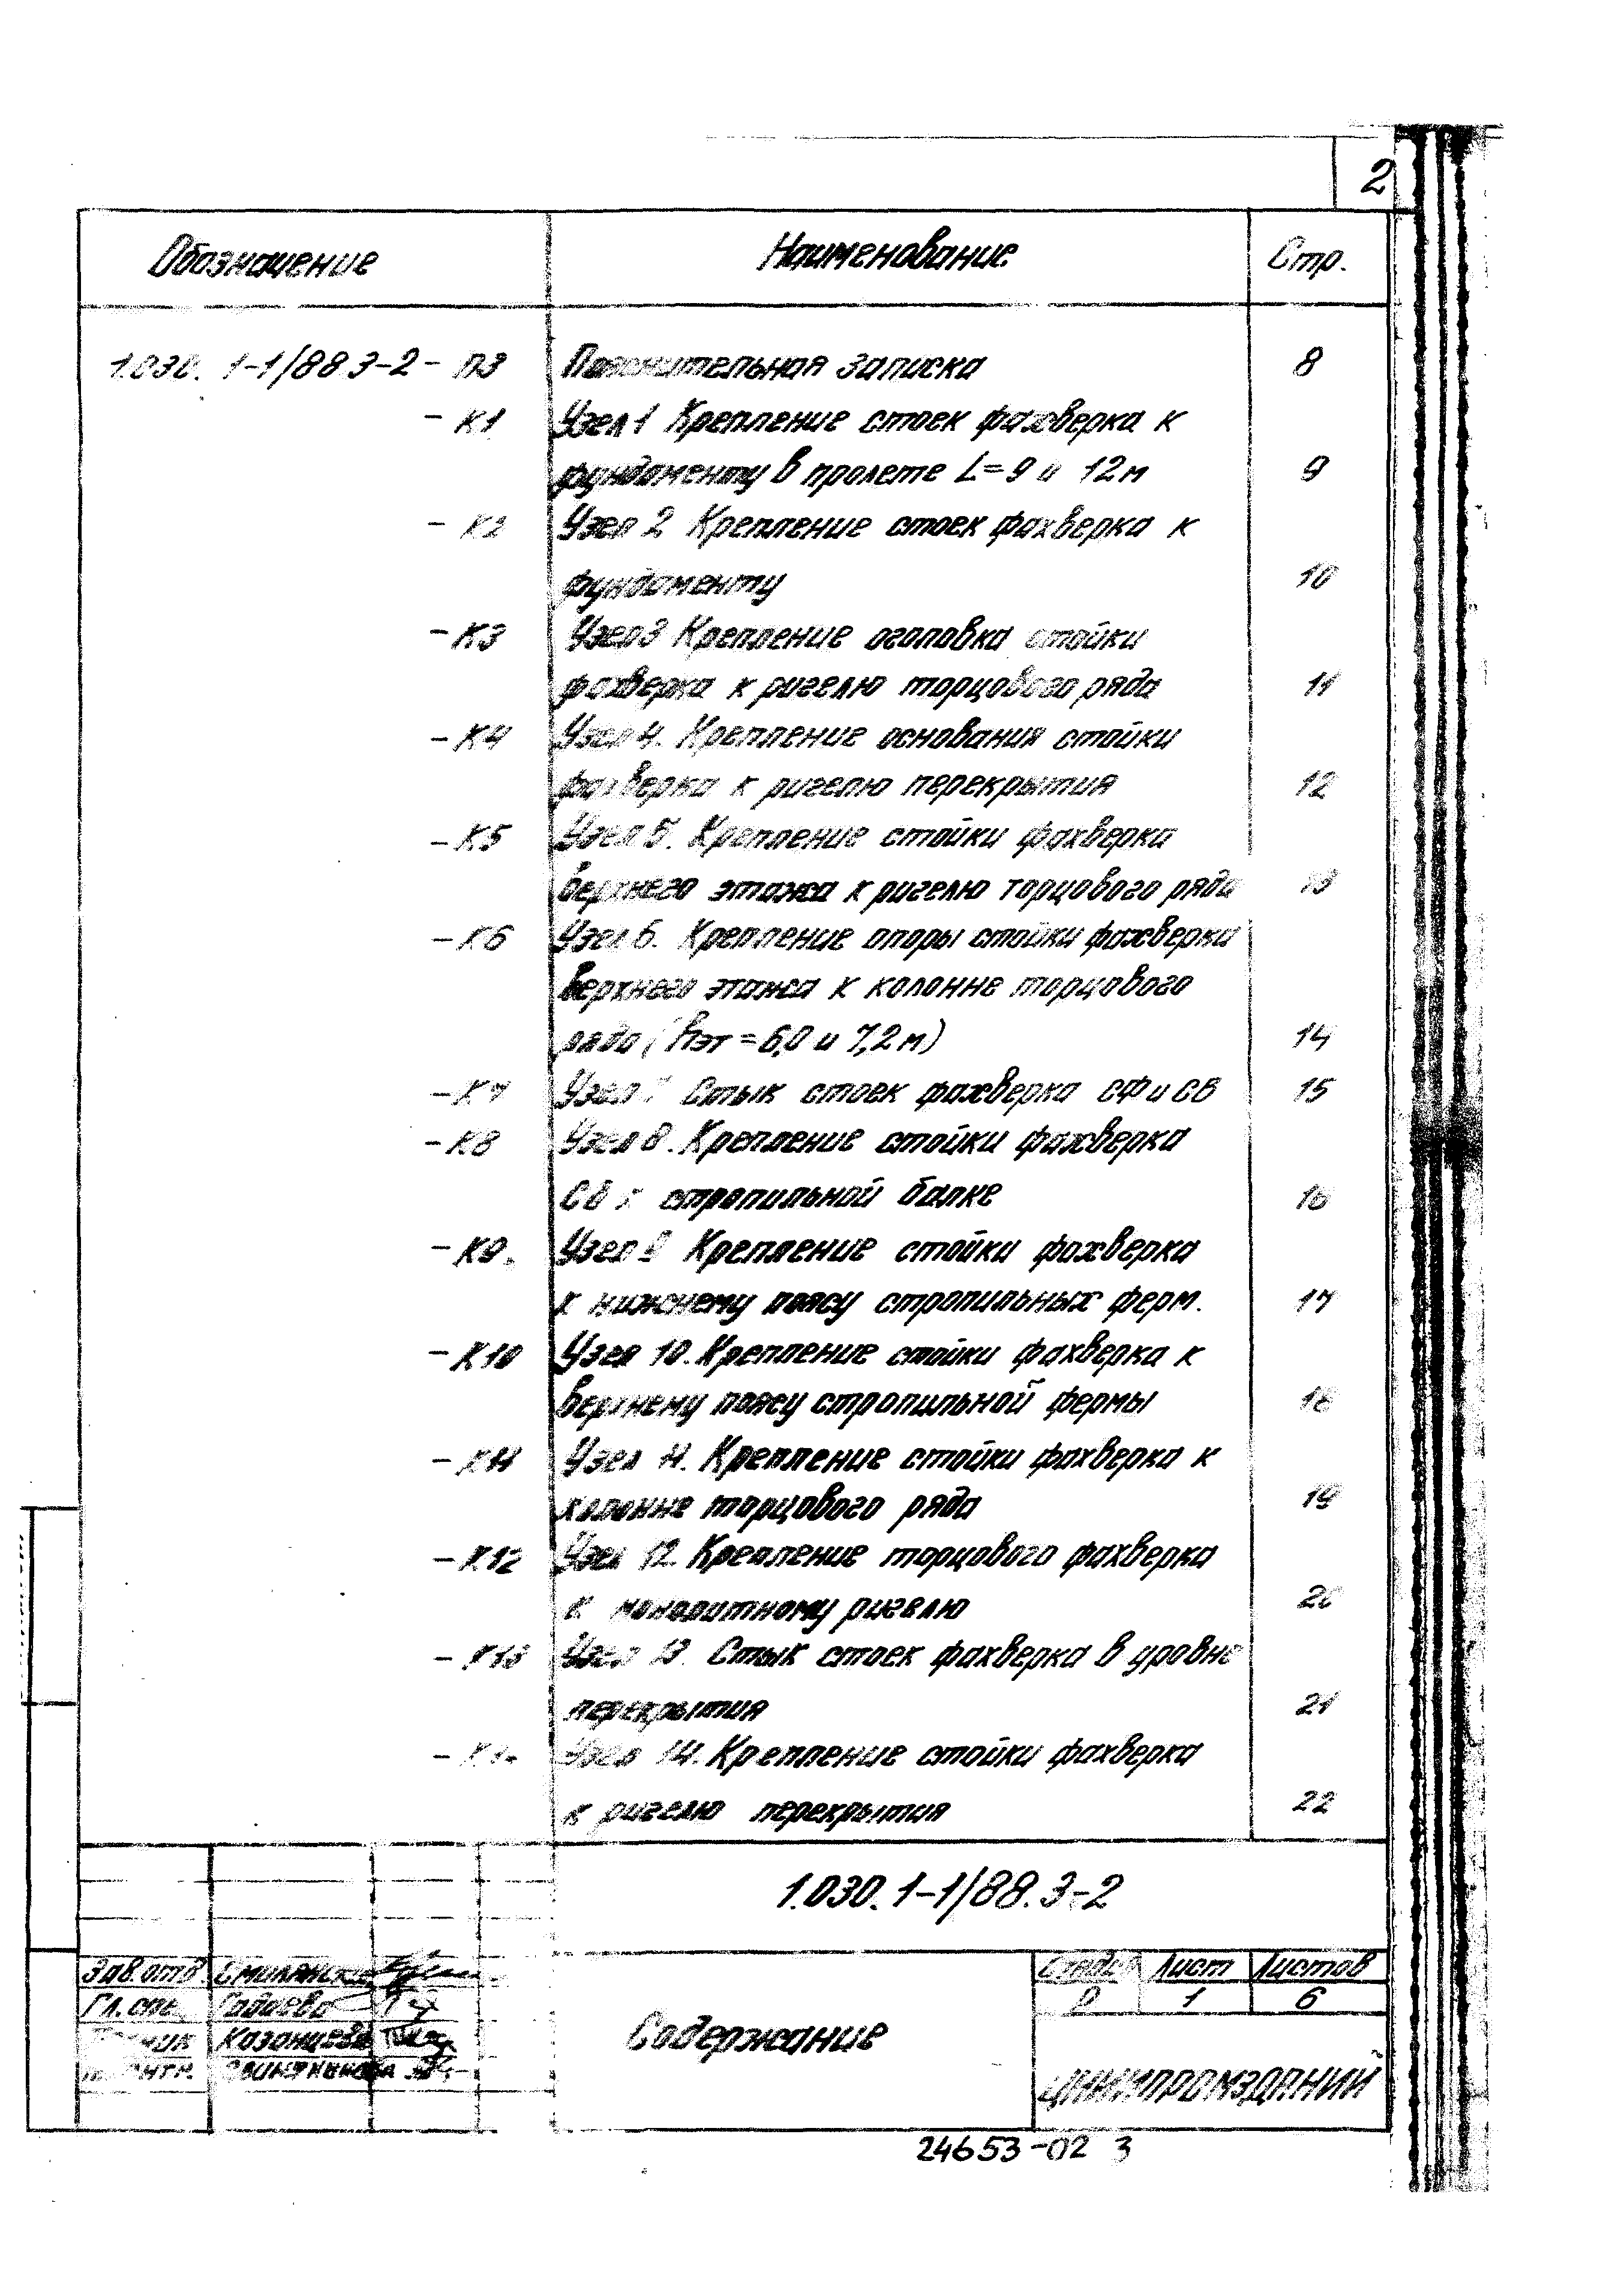 2
Обозначение Наименование Стр.
1.030.1-1/88.3-2- ПЗ Пояснительная записка 8
- К1 Узел 1 Крепление стоек фахверка к
фундаменту в пролете L=9 и 12м 9
- К2 Узел 2 Крепление стоек фахверка к
фундаменту 10
- К3 Узел 3 Крепление оголовка стойки
фахверка к ригелю торцового ряда 11
- К4 Узел 4. Крепление основания стойки
фахверка к ригелю перекрытия 12
- К5 Узел 5. Крепление стойки фахверка
верхнего этажа к ригелю торцового ряда 13
- К6 Узел 6. Крепление опоры стойки фахверка
верхнего этажа к колонне торцового
ряда (hэт = 6,0 и 7,2м) 14
- К7 Узел 7 Стык стоек фахверка СФ и СВ 15
- К8 Узел 8. Крепление стойки фахверка
к стропильной балке 16
- К9. Узел 9 Крепление стойки фахверка
к нижнему поясу стропильных ферм. 17
- К10 Узел 10. Крепление стойки фахверка к
верхнему поясу стропильной фермы 18
- К11 Узел 11. Крепление стойки фахверка к
колонне торцового ряда 19
- К12 Узел 12. Крепление торцового фахверка
к монолитному ригелю 20
- К13 Узел 13. Стык стоек фахверка в уровне
перекрытия 21
- К14 Узел 14. Крепление стойки фахверка
к ригелю перекрытия 22
1.030.1-1/88.3-2
Зав. отд Смилянский
Гл. спец.
Казанцева
Содержание
Стадия Лист Листов
Р 1 6
ЦНИИПРОМЗДАНИЙ
24653-02 3